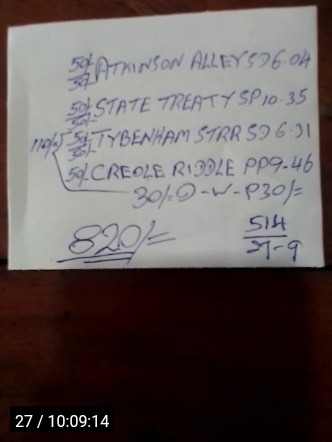 50/- 50/- ATKINSON ALLEY SD 6.04
50/- 50/- STATE TREATY SP 10.35
110/- 50/- 50/- TYBENHAM STRR SD 6.31
50/ CREOLE RIDDLE PP 9.46
30/= D-W-P30/=
820/=
514
27-9
27 / 10:09:14